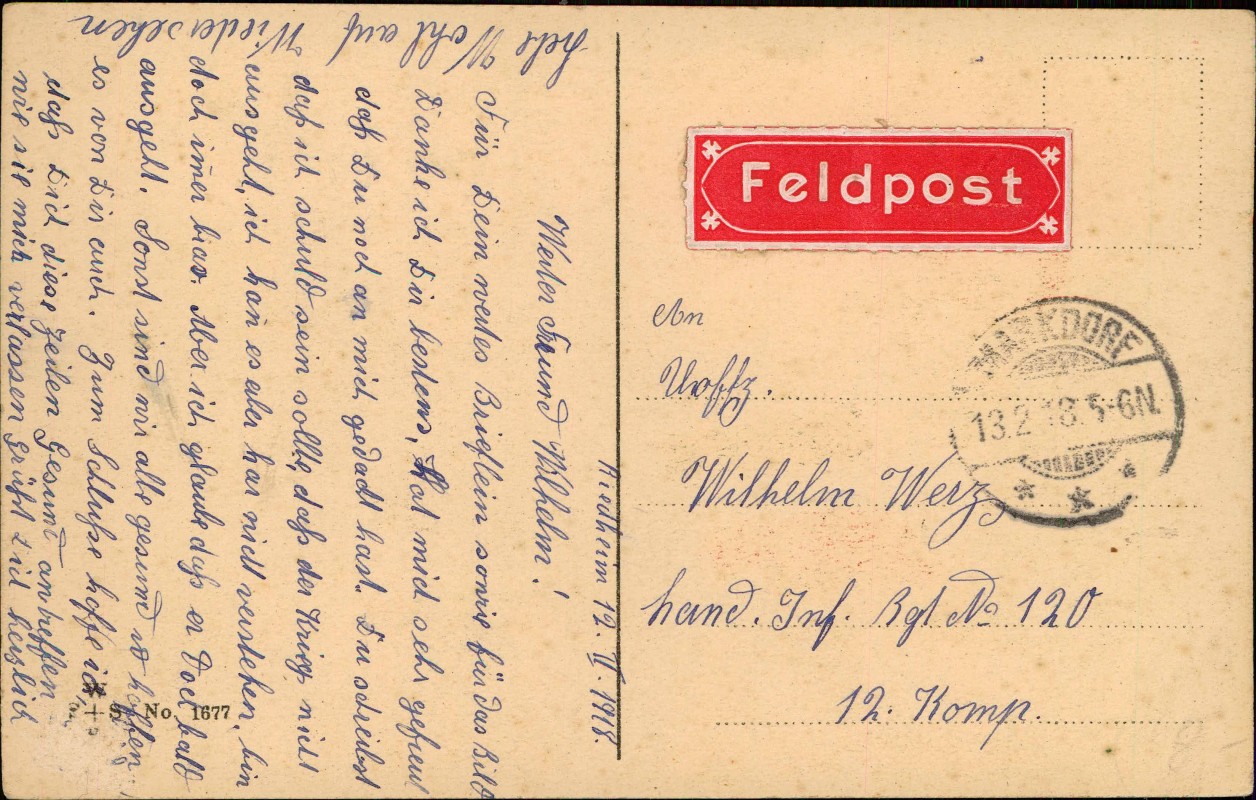 Riedheim 12. II. 1918.
Werter Freund Wilhelm!
Für Dein wertes Brieflein sowie für das Bild
Danke ich Dir bestens, Hat mich sehr gefreut
daß Du noch an mich gedacht hast. Du schreibst
daß ich schuld sein sollte, daß der Krieg nicht
ausgeht, ich kan̄ es aber gar nicht verstehen, bin
doch im̄er brav. Aber ich glaube daß er Doch bald
ausgeht. Sonst sind wir alle gesund u hoffen
es von Dir auch. Zum Schluße hoffe ich
daß Dich diese Zeilen Gesund antreffen
wie sie mich verlassen Grüßt Dich herzlich
Lebe Wohl auf Wiedersehen
S No 1677
Feldpost
MARKDORF
13.2.18.5-6N.
An
Uroffz.
Wilhelm Werz
Land. Inf. Rgt No 120
12. Komp.